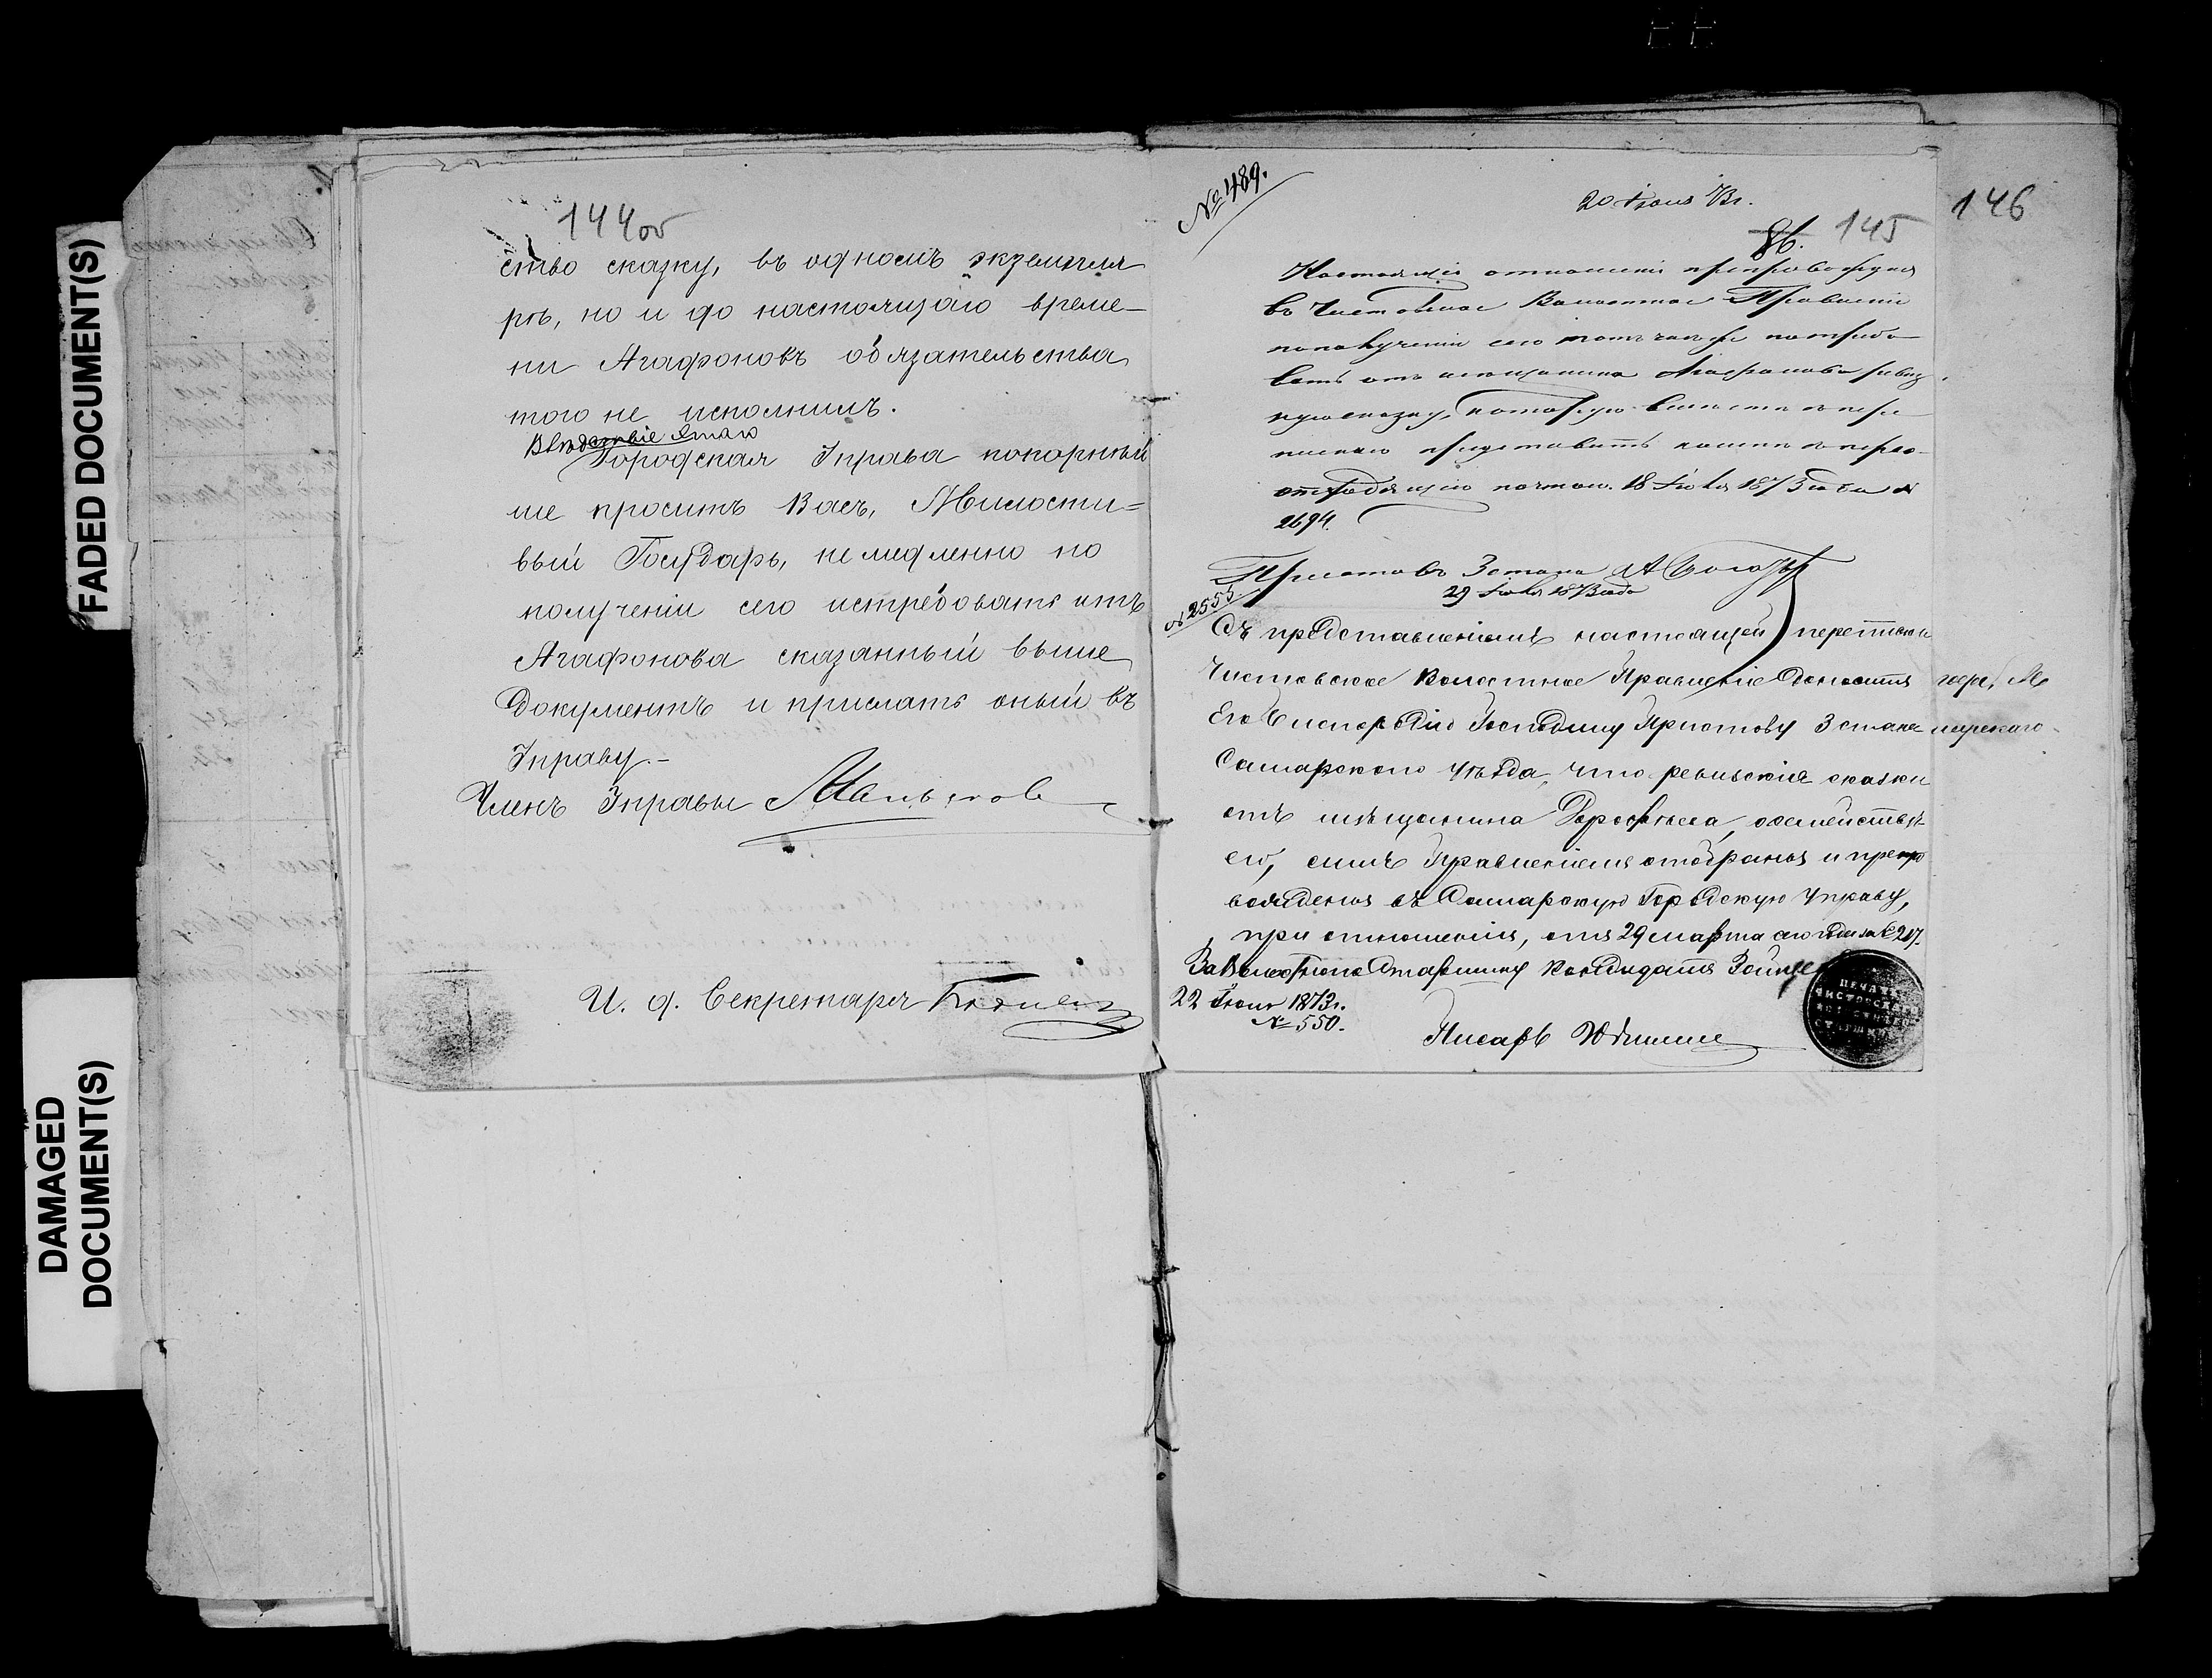 FADED DOCUMENT(S)
DAMAGED
DOCUMENT(S)
144 об
ство сказку, въ одномъ экземпля
рѣ, но и до настоящаго време-
ни Агафоновъ обязательства
того не исполнилъ.
Городская Управа покорнѣй
ше проситъ Васъ, Милости=
вый Государь, немедленно по
полученіи сего истребовать отъ
Агафонова сказанный выше
документъ и прислать оный въ
Управу.-
Членъ Управы
И. д. Секретаря
№ 489.
20 Іюня 73 г.
86. 145
146
Настоящее отношеніе препровождая
въ Чистовское Волостное Правленіе
по полученіи сего тотъ часъ же потребо
вать отъ мѣщанина Агафонова ревиз
кую сказку, которую вмѣстѣ съ пере
пиской представить ко мнѣ съ перво-
отходящею почтою. 18 Іюня 1873 года №
2694.
Приставъ 3 стана
29 Іюня 1873 года
2555
Съ представленіемъ настоящей переписки
Чистовское Волостное Правленіе доноситъ
Его Высокородію Господину Приставу 3 стана
Самарскаго Уѣзда, что ревизскія сказки
отъ мѣщанина семейства
его, симъ Правленіемъ отобраны и препро
вождены въ Самарскую Городскую Управу,
при отношеніи, отъ 29 марта сего года за № 217.
За Волостнаго Старшину Кандидатъ
22 Іюня 1873 г.
№ 550.
Писарь
ПЕЧАТЬ
ЧИСТОВСК
ВОЛОСТНАГО
СТАРШИНЫ